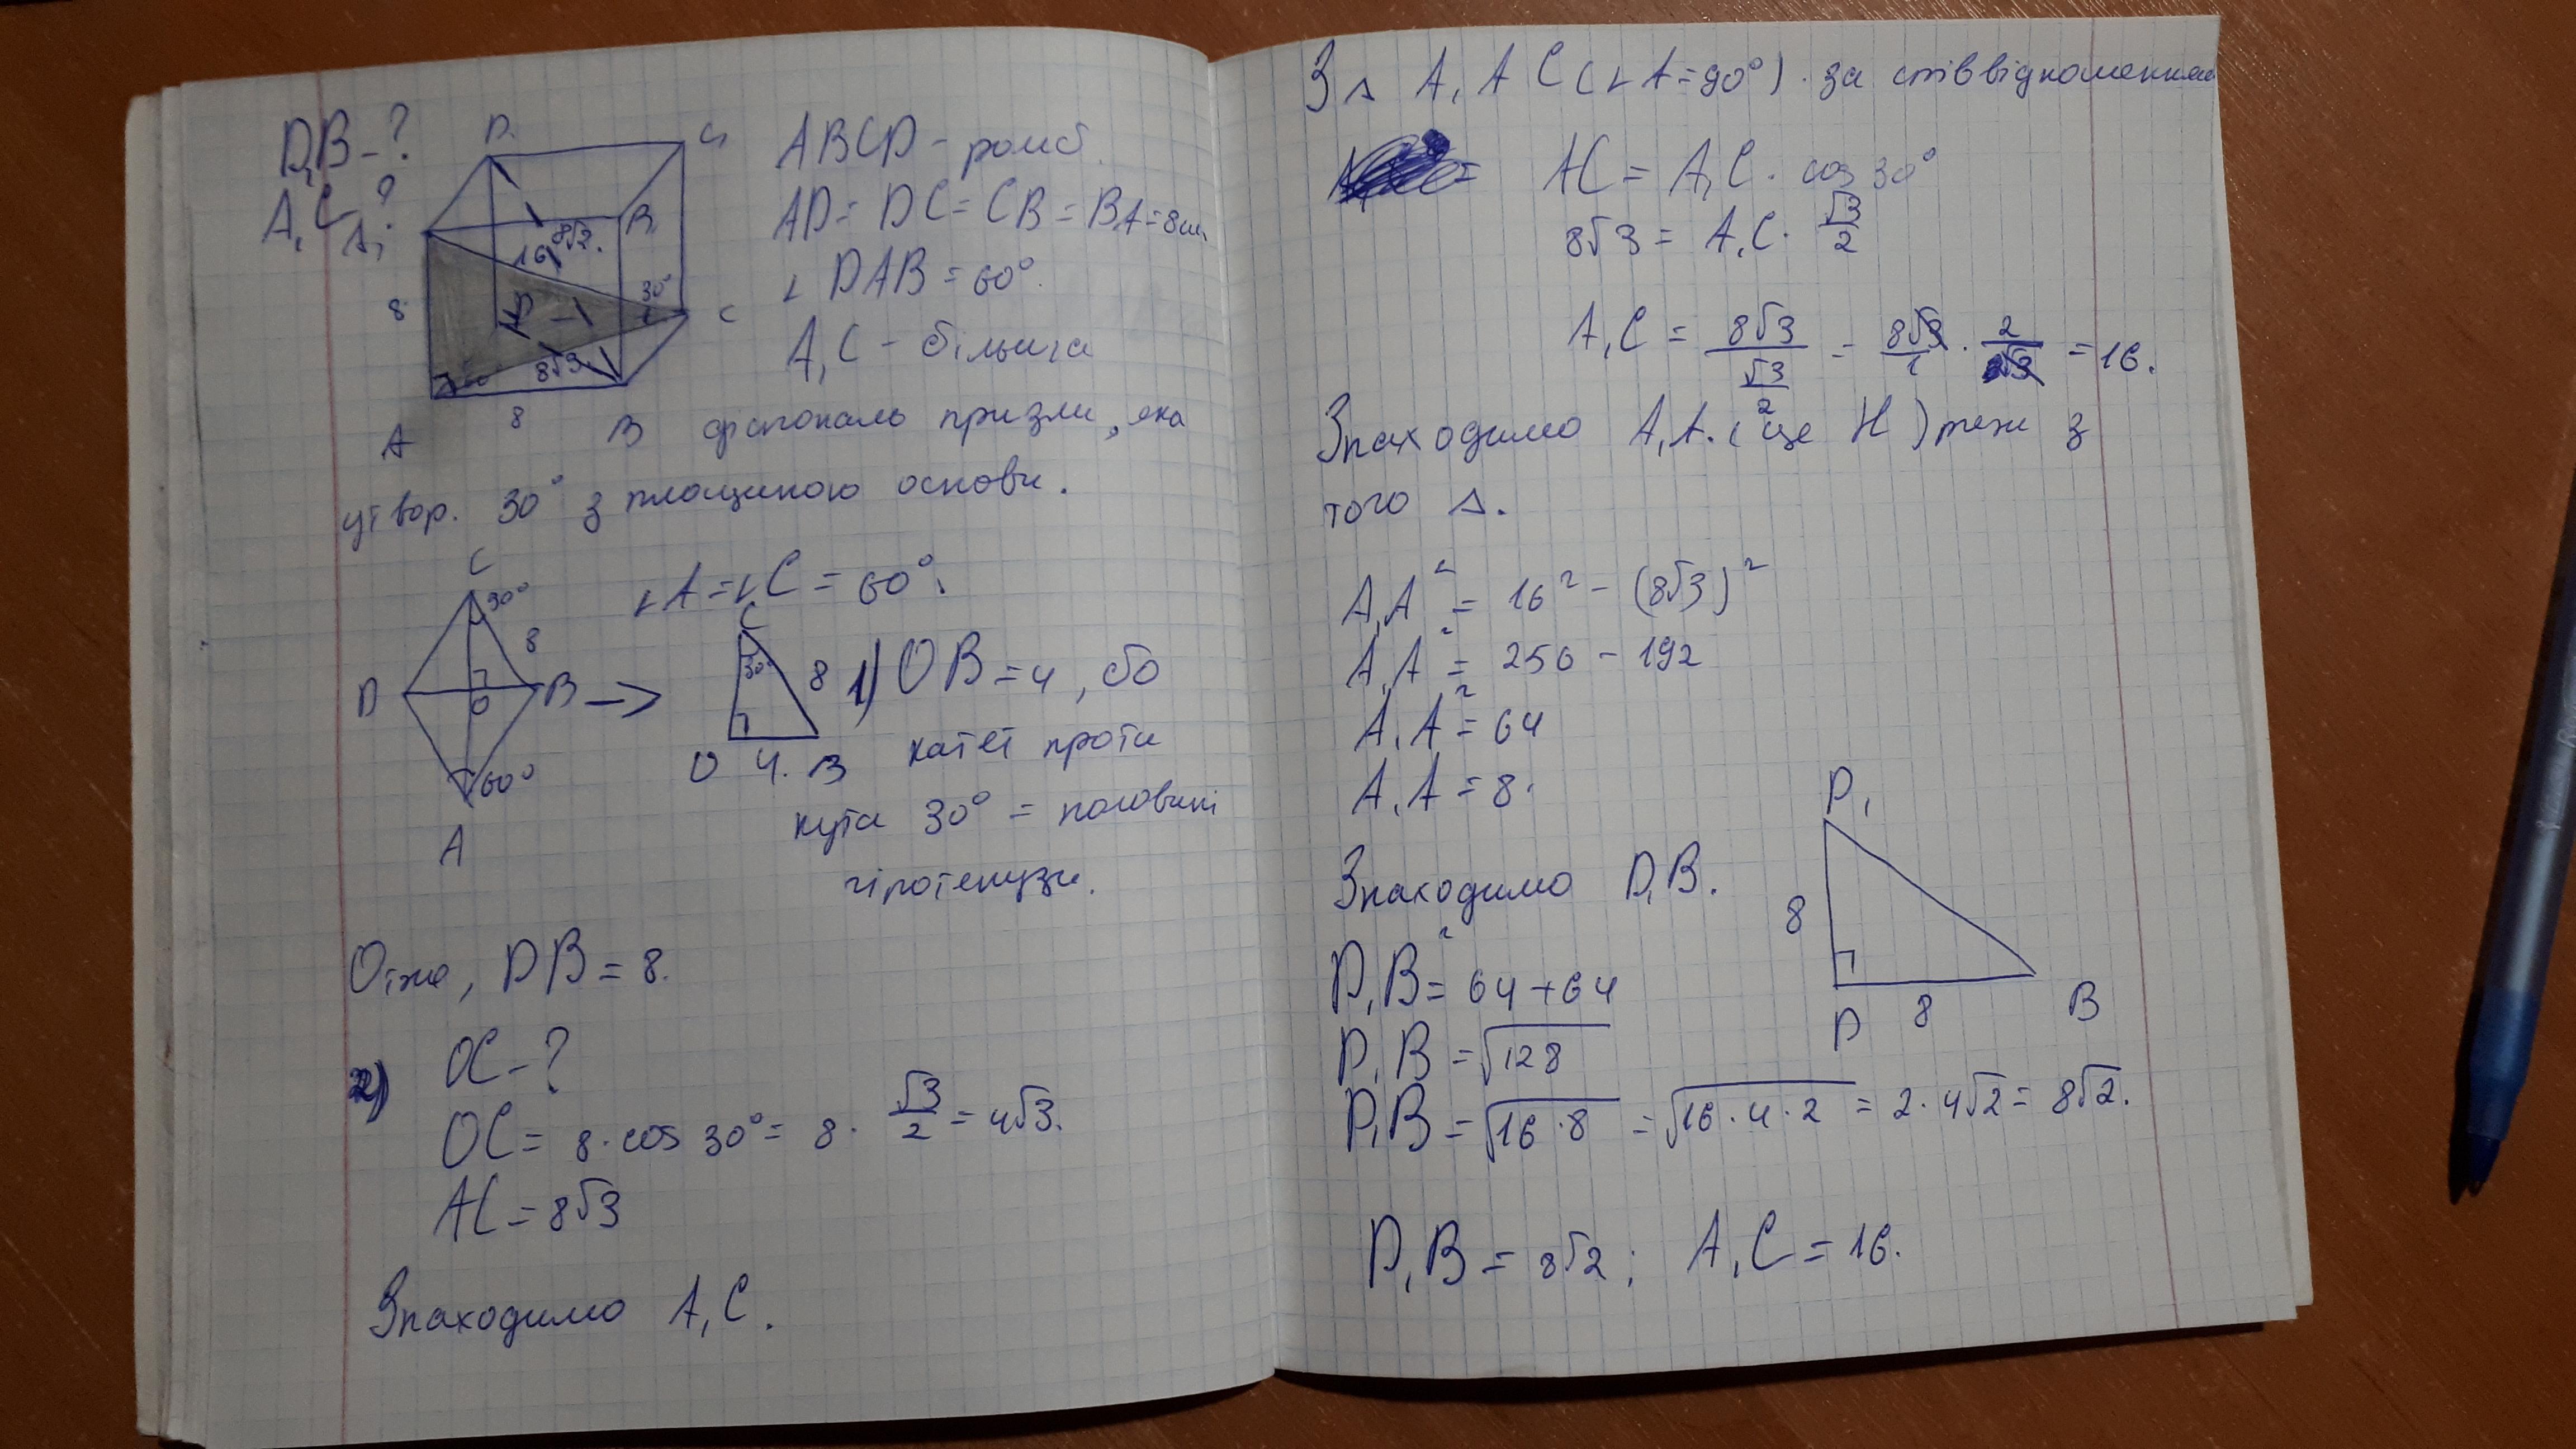 D₁B - ?
A₁C - ?
D₁
C₁
A₁
B₁
16
8√2.
30°
8
D
C
8√3
A
8
B
ABCD - ромб.
AD = DC = CB = BA = 8см.
∟DAB = 60°.
A₁C - більша
діагональ призми, яка
утвор. 30° з площиною основи.
C
30°
8
D
O
B
60°
A
∟A = ∟C = 60°.
C
30°
8
O 4. B
1) OB = 4, бо
катет проти
кута 30° = половині
гіпотенузи.
Отже, DB = 8.
2) OC - ?
OC = 8 · cos 30° = 8 · √3/2 = 4√3.
AC = 8√3
Знаходимо A₁C.
З △ A₁AC (∟A = 90°) за співвідношенням
AC = A₁C · cos 30°
8√3 = A₁C · √3/2
A₁C = 8√3/(√3/2) = 8√3/1 · 2/√3 = 16.
Знаходимо A₁A. (це H) теж з
того △.
A₁A² = 16² - (8√3)²
A₁A² = 256 - 192
A₁A² = 64
A₁A = 8.
Знаходимо D₁B.
D₁B² = 64 + 64
D₁B = √128
D₁B = √16·8 = √16·4·2 = 2·4√2 = 8√2.
D₁
8
D
8
B
D₁B = 8√2; A₁C = 16.